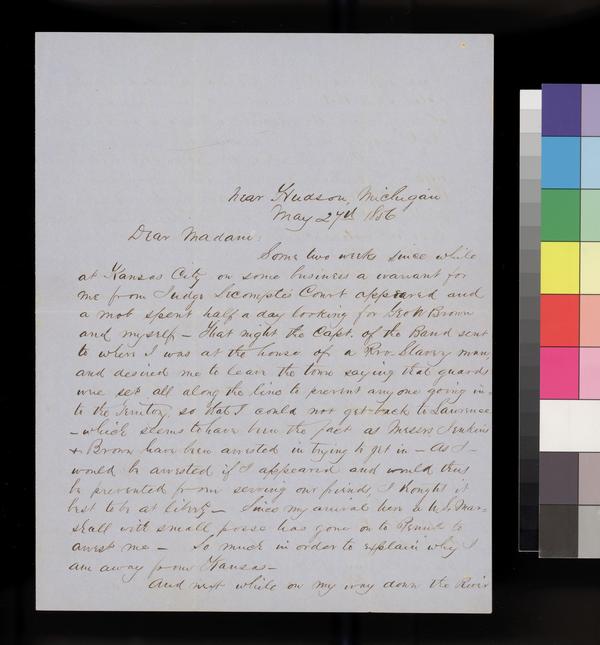 Near Hudson, Michigan
May 27th 1856
Dear Madam:
Some two weeks since while
at Kansas City on some business a warrant for
me from Judge Lecompte's Court appeared and
a mob spent half a day looking for Geo W Brown
and myself - That night the Capt. of the Band sent
to where I was at the house of a Pro Slavery man,
and desired me to leave the town saying that guards
were set all along the line to prevent anyone going in-
to the Territory, so that I could not get back to Lawrence
- which seems to have been the fact as Messrs Jenkins
& Brown have been arrested in trying to get in - As I
would be arrested if I appeared and would thus
be prevented from serving our friends, I thought it
best to be at liberty - Since my arrival here a U.S. Mar-
shall with small posse has gone on to to
arrest me - So much in order to explain why I
am away from Kansas -
And next while on my way down the River